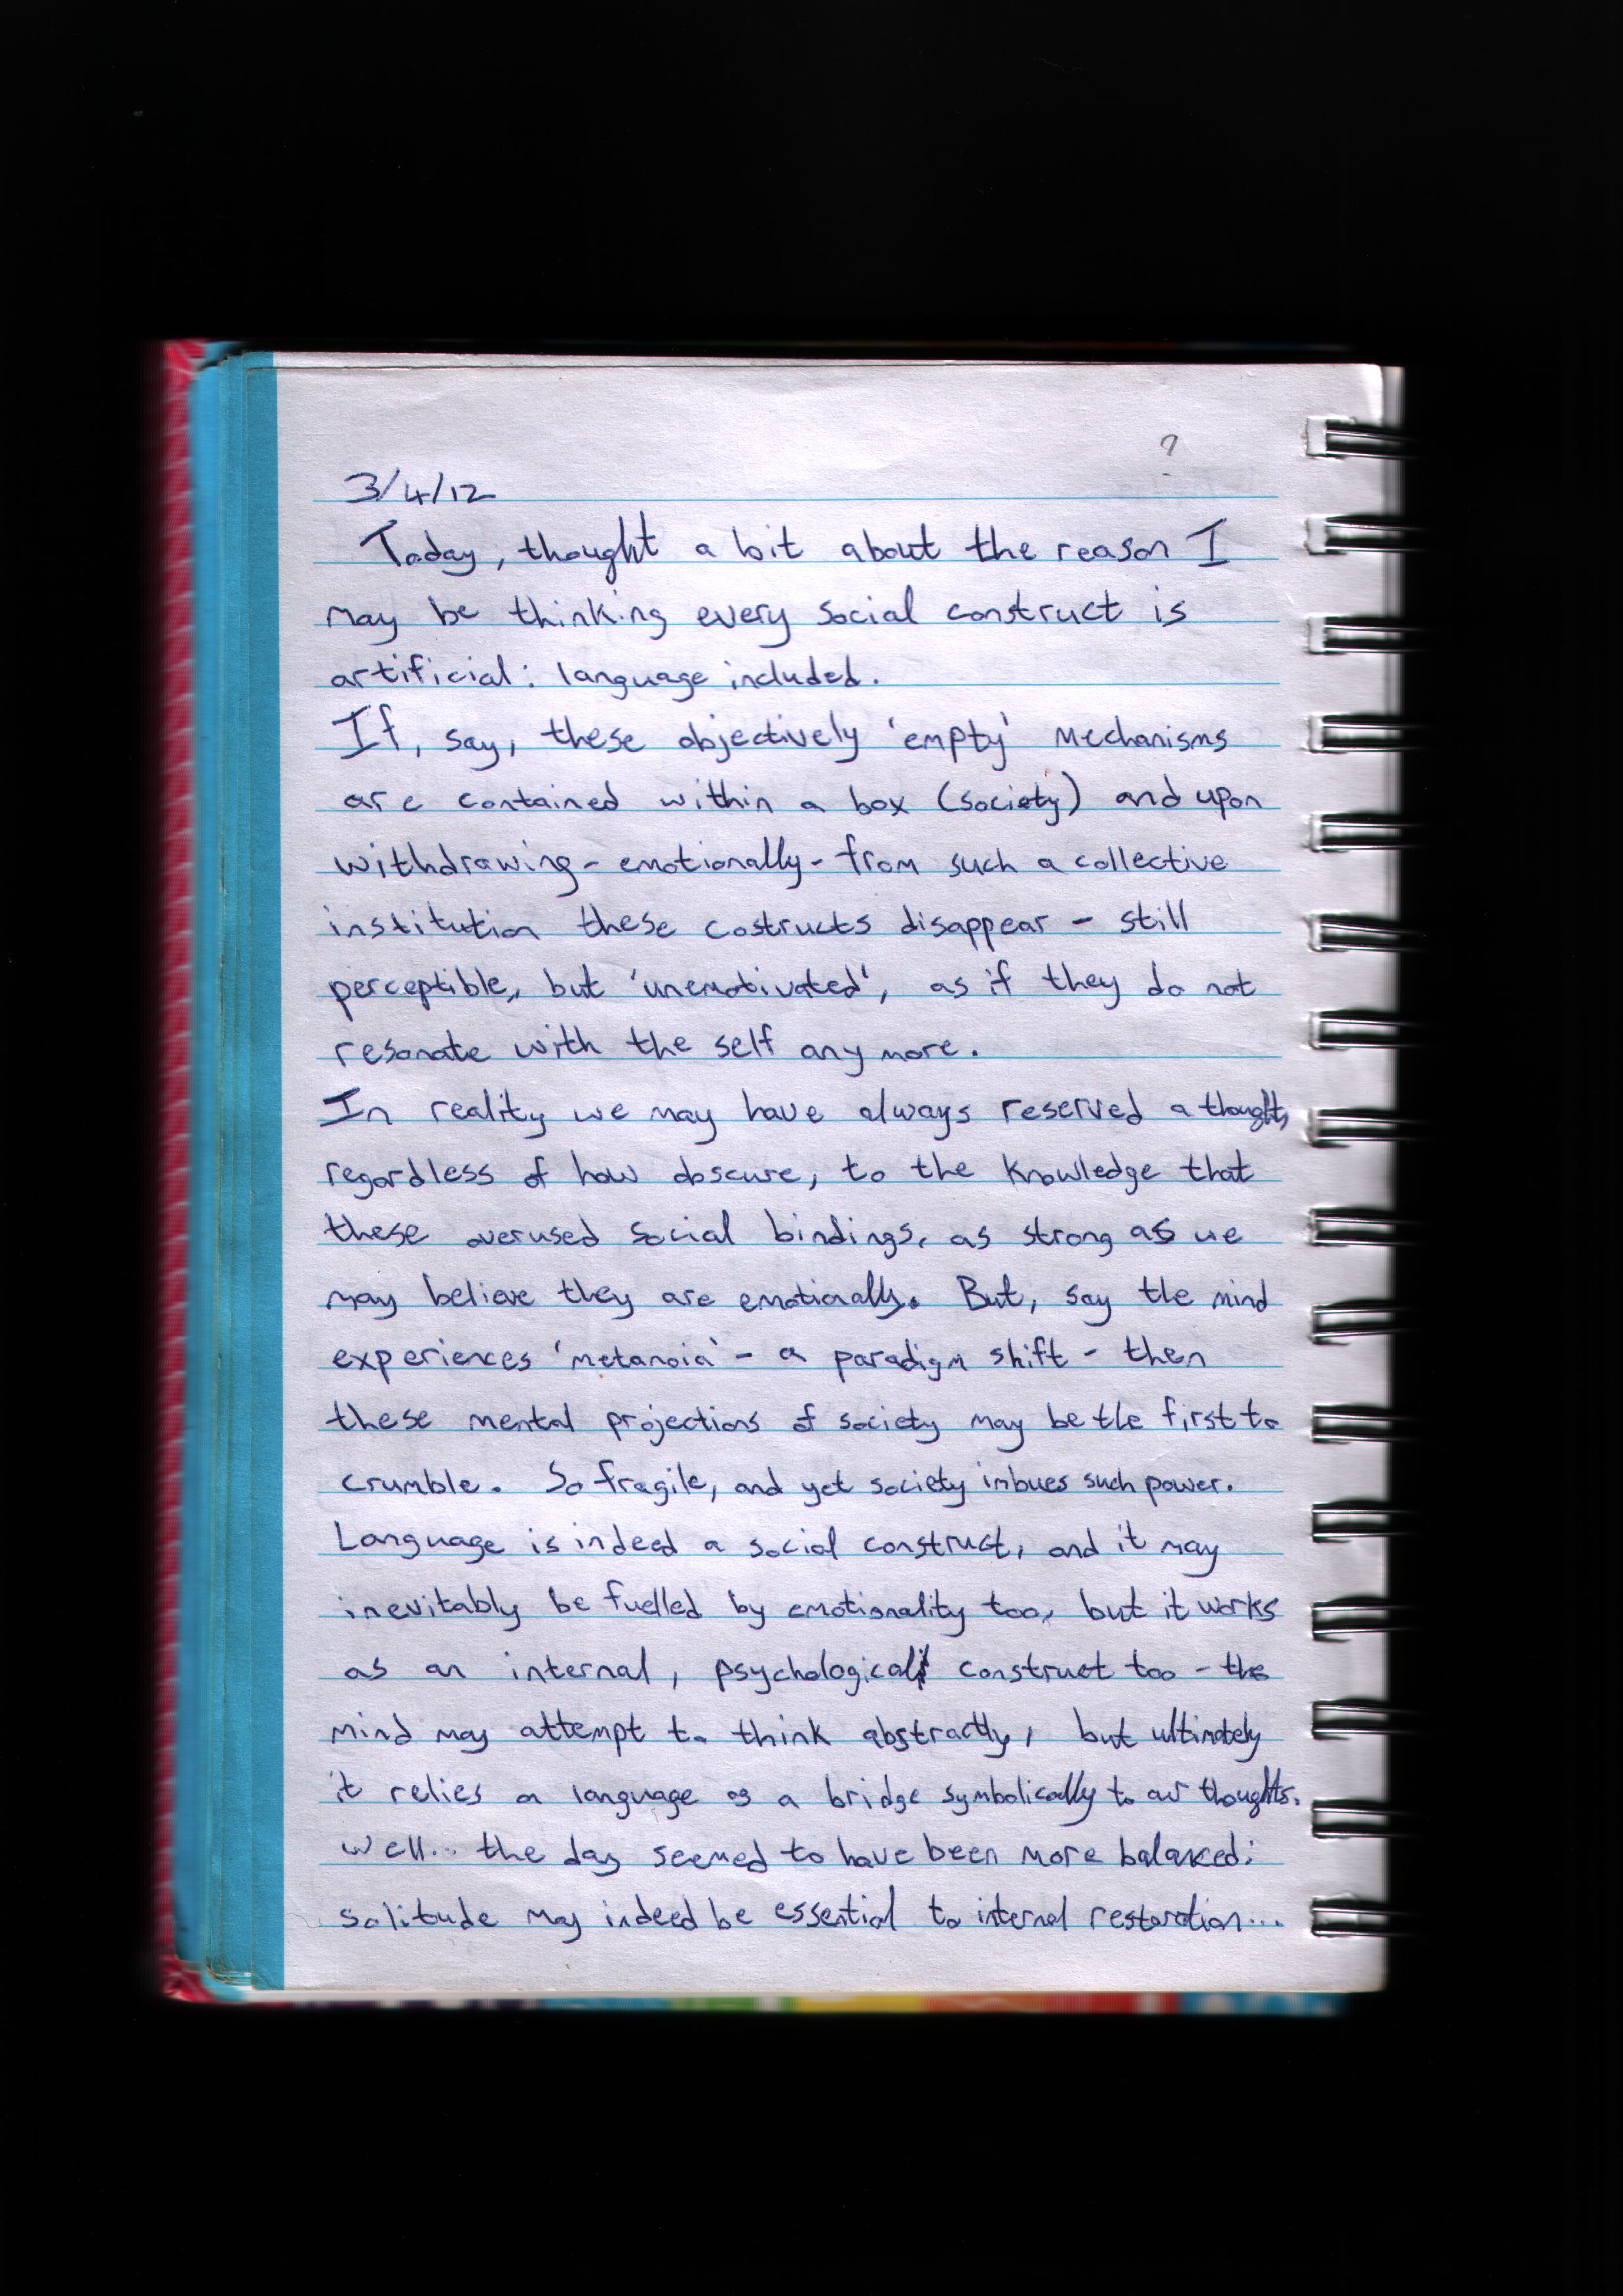 ?
3/4/12
Today, thought a bit about the reason I
may be thinking every social construct is
artificial: language included.
If, say, these objectively 'empty' mechanisms
are contained within a box (society) and upon
withdrawing - emotionally - from such a collective
institution these costructs disappear - still
perceptible, but 'unemotivated', as if they do not
resonate with the self any more.
In reality we may have always reserved a thought,
regardless of how obscure, to the knowledge that
these overused social bindings, as strong as we
may believe they are emotionally. But, say the mind
experiences 'metanoia' - a paradigm shift - then
these mental projections of society may be the first to
crumble. So fragile, and yet society imbues such power.
Language is indeed a social construct, and it may
inevitably be fuelled by emotionality too, but it works
as an internal, psychological construct too - the
mind may attempt to think abstractly, but ultimately
it relies on language as a bridge symbolically to our thoughts.
Well... the day seemed to have been more balanced:
solitude may indeed be essential to internal restoration...